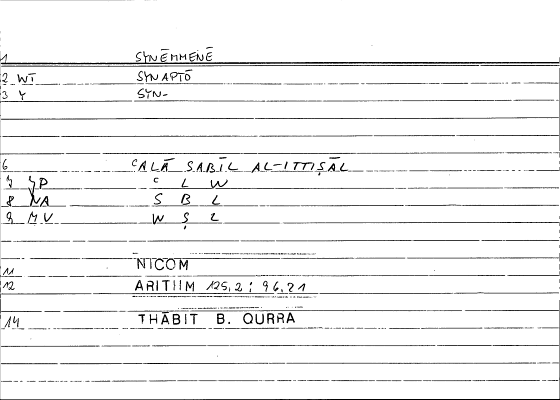 1 SYNĒMMENĒ
2 WT SYNAPTŌ
3 Y SYN-
6 ʿALĀ SABĪL AL-ITTIṢĀL
7 YP ʿ L W
8 NA S B L
9 MV W Ṣ L
11 NICOM
12 ARITHM 125,2 ; 96,21
14 THĀBIT B. QURRA